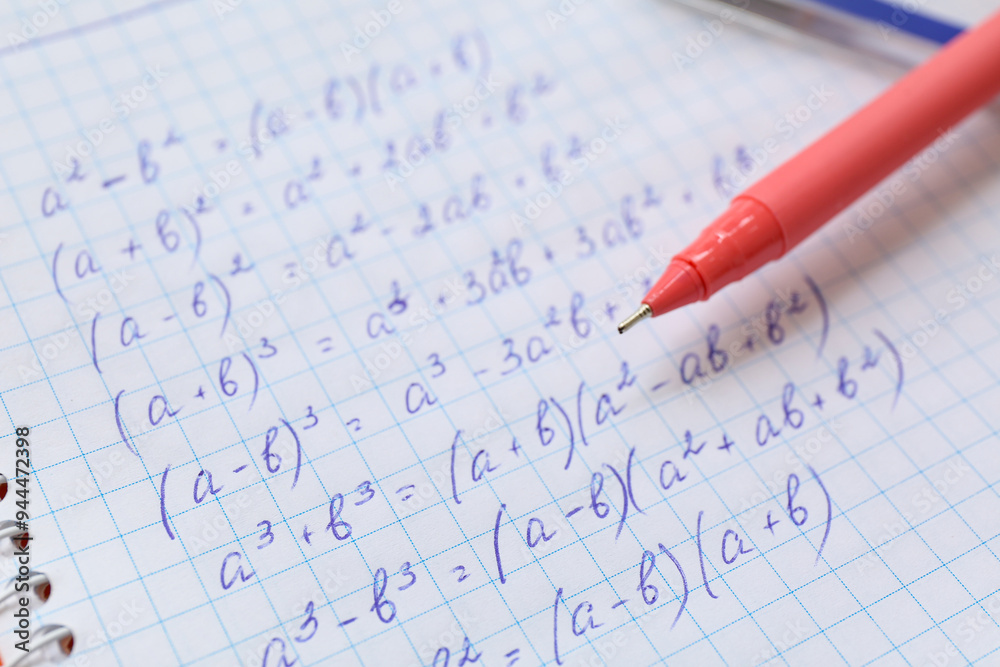 a² - b² = (a - b)(a + b)
(a + b)² = a² + 2ab + b²
(a - b)² = a² - 2ab + b²
(a + b)³ = a³ + 3a²b + 3ab² + b³
(a - b)³ = a³ - 3a²b +
a³ + b³ = (a + b)(a² - ab + b²)
a³ - b³ = (a - b)(a² + ab + b²)
² = (a - b)(a + b)
Adobe Stock | #944472398